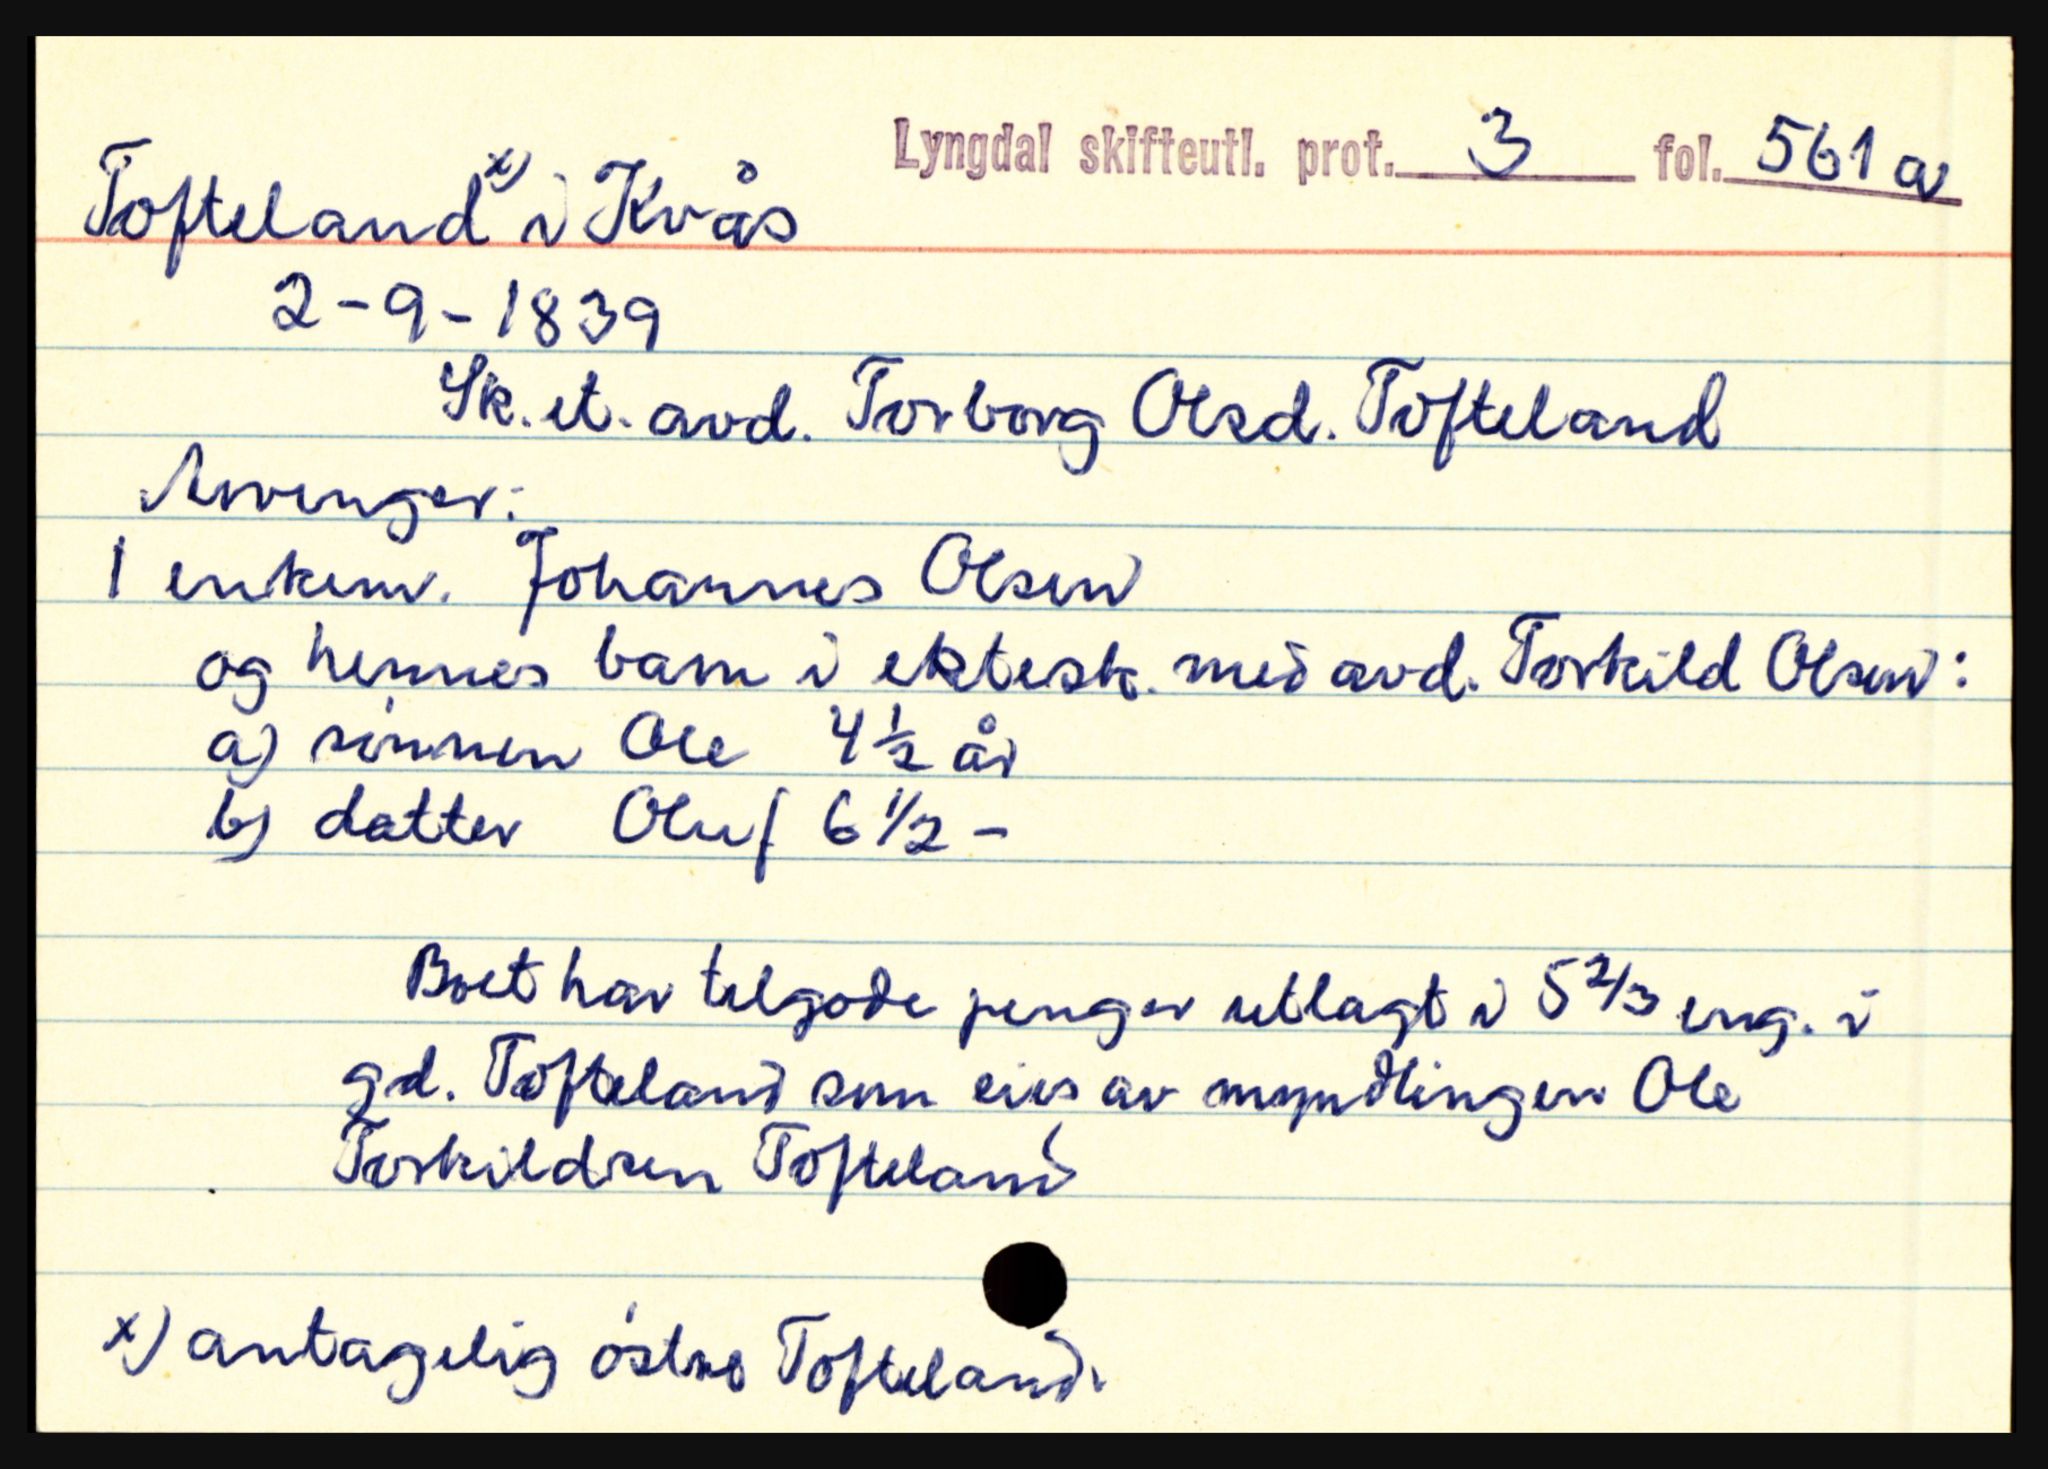 Lyngdal skifteutl. prot. 3 fol. 561 a
Tofteland x) i Kvås
2-9-1839
Sk. et. avd. Torborg Olsd. Tofteland
Arvinger:
1 enkem. Johannes Olsen
og hennes barn i ektesk. med avd. Torkild Olsen:
a) sönnen Ole 4 1/2 år
b) datter Oluf 6 1/2 -
Boet har tilgode penger utlagt i 5 2/3 eng. i
gd. Tofteland som eies av myndlingen Ole
Torkildsen Tofteland
x) antagelig östre Tofteland.